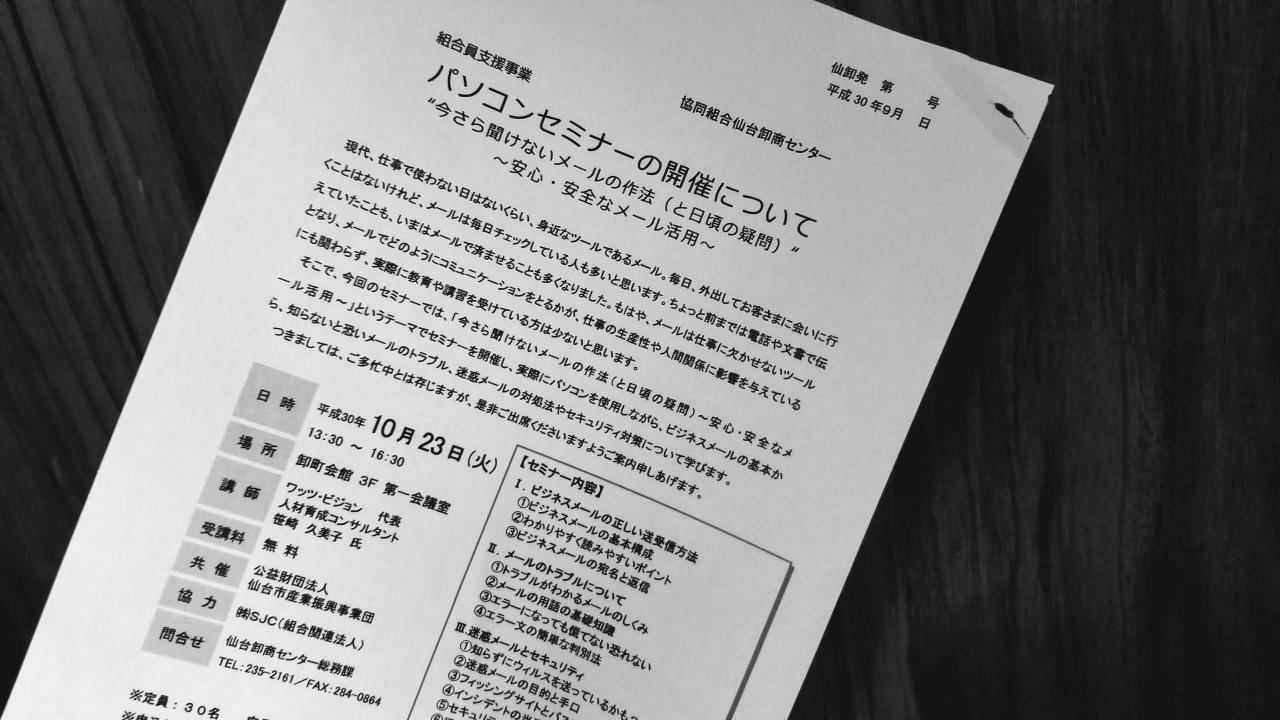 仙卸発 第 号
平成30年9月 日
組合員支援事業
協同組合仙台卸商センター
パソコンセミナーの開催について
“今さら聞けないメールの作法（と日頃の疑問）
～安心・安全なメール活用～ ”
現代、仕事で使わない日はないくらい、身近なツールであるメール。毎日、外出してお客さまに会いに行
くことはないけれど、メールは毎日チェックしている人も多いと思います。ちょっと前までは電話や文書で伝
えていたことも、いまはメールで済ませることも多くなりました。もはや、メールは仕事に欠かせないツール
となり、メールでどのようにコミュニケーションをとるかが、仕事の生産性や人間関係に影響を与えている
にも関わらず、実際に教育や講習を受けている方は少ないと思います。
そこで、今回のセミナーでは、「今さら聞けないメールの作法（と日頃の疑問）～安心・安全なメ
ール活用～」というテーマでセミナーを開催し、実際にパソコンを使用しながら、ビジネスメールの基本か
ら、知らないと恐いメールのトラブル、迷惑メールの対処法やセキュリティ対策について学びます。
つきましては、ご多忙中とは存じますが、是非ご出席くださいますようご案内申しあげます。
日 時
平成30年 10月23日（火）
13：30 ～ 16：30
場 所
卸町会館 3F 第一会議室
講 師
ワッツ・ビジョン 代表
人材育成コンサルタント
笹崎 久美子 氏
受講料
無 料
共 催
公益財団法人
仙台市産業振興事業団
協 力
㈱SJC（組合関連法人）
問合せ
仙台卸商センター総務課
TEL：235-2161／FAX：284-0864
※定員：３０名
【セミナー内容】
Ⅰ．ビジネスメールの正しい送受信方法
①ビジネスメールの基本構成
②わかりやすく読みやすいポイント
③ビジネスメールの宛名と返信
Ⅱ．メールのトラブルについて
①トラブルがわかるメールのしくみ
②メールの用語の基礎知識
③エラーになっても慌てない恐れない
④エラー文の簡単な判別法
Ⅲ．迷惑メールとセキュリティ
①知らずにウィルスを送っているかも～
②迷惑メールの目的と手口
③フィッシングサイトとパス
④インシデントの
⑤セキュリテ